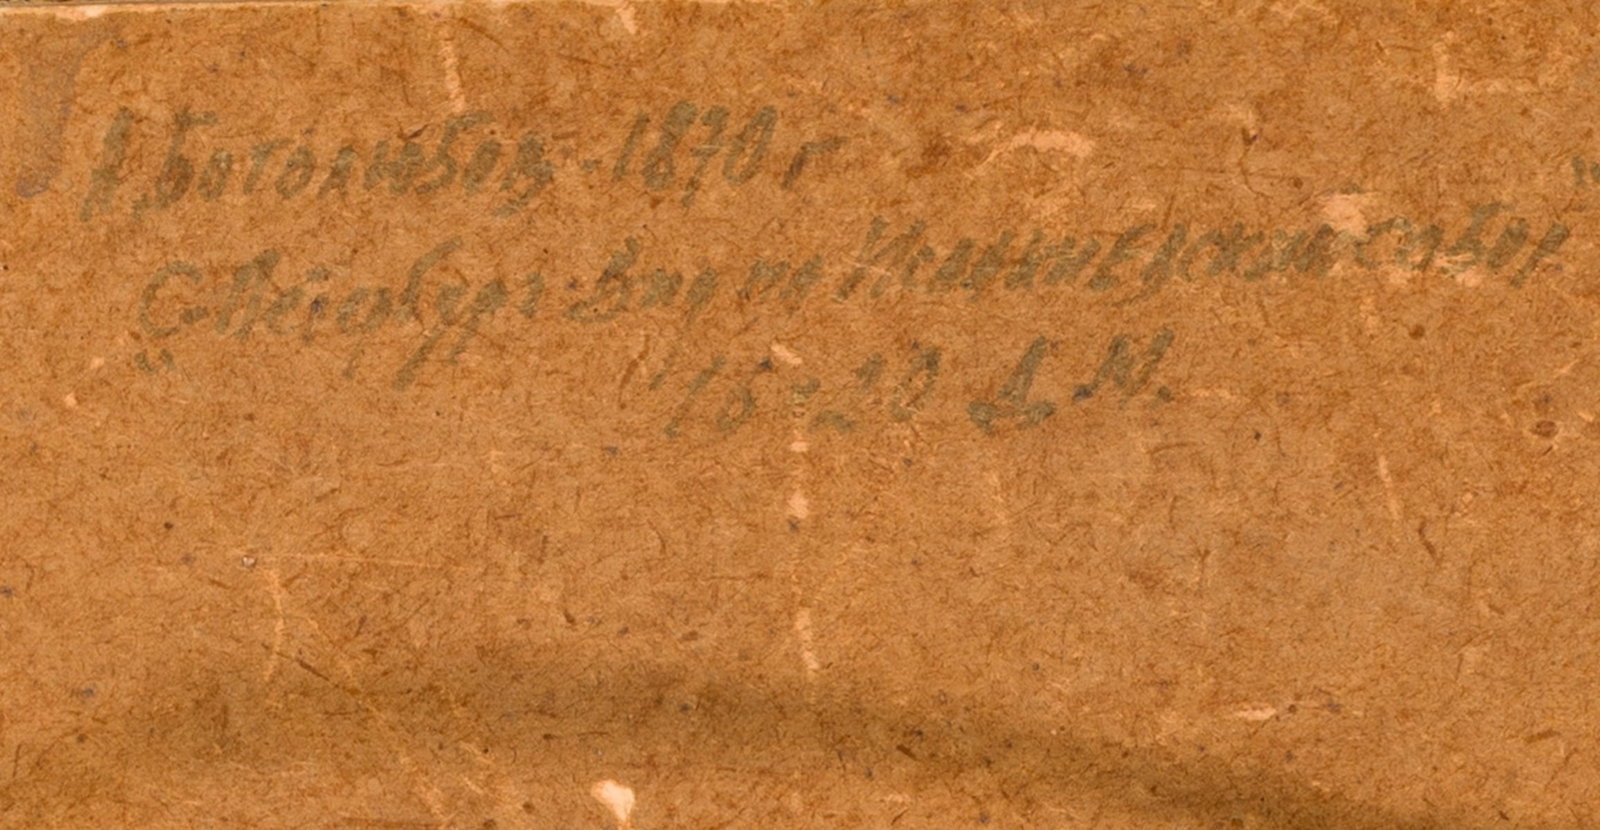 А. Боголюбов - 1870 г
С-Петербург Вид на Исаакиевский собор